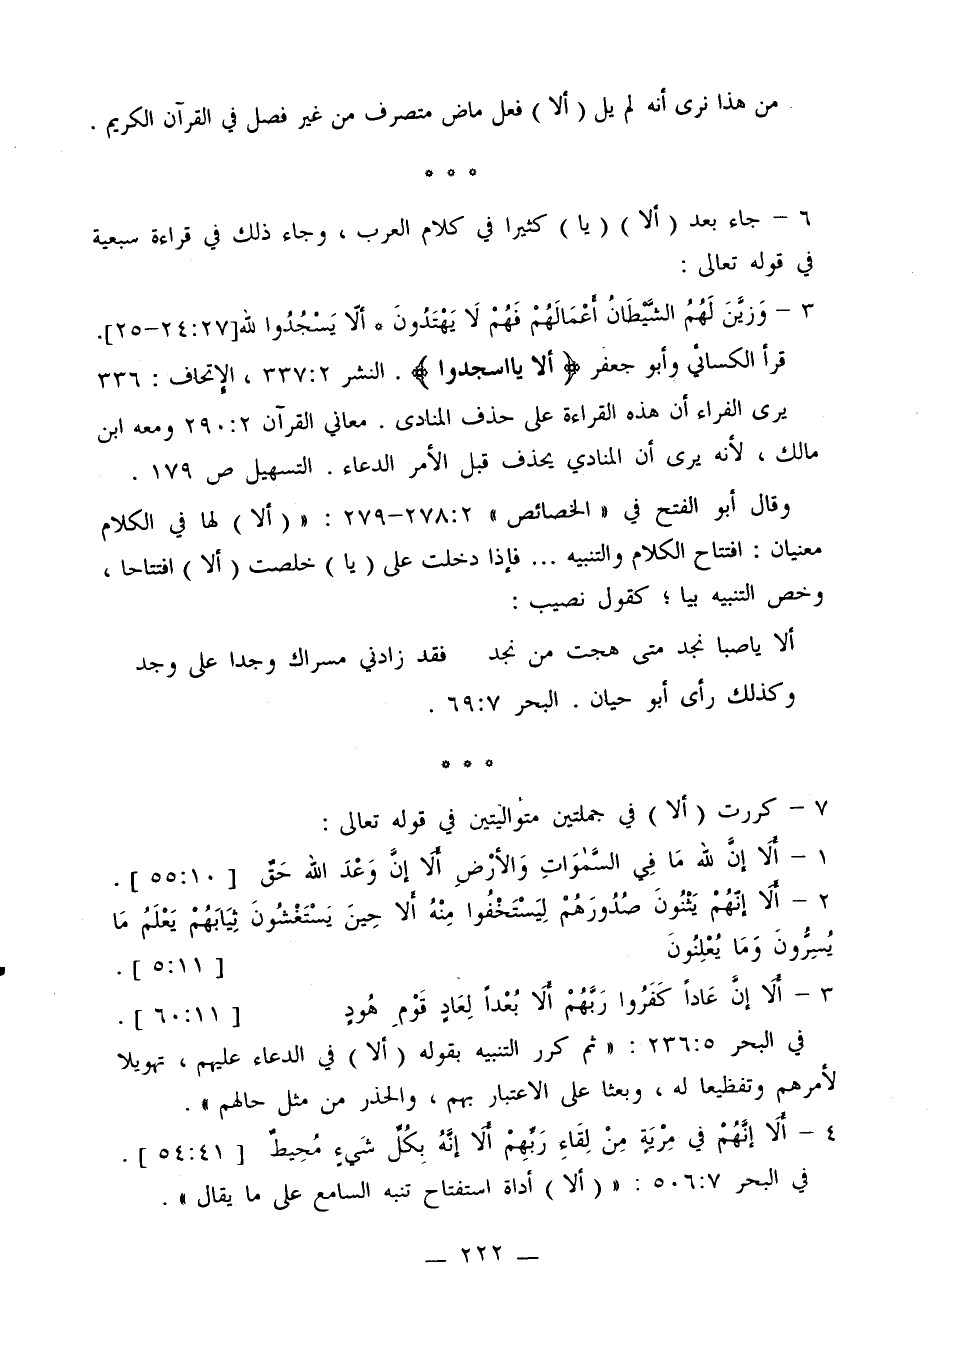 من هذا نرى أنه لم يل ( ألا ) فعل ماض متصرف من غير فصل في القرآن الكريم .
* * *
٦ – جاء بعد ( ألا ) ( يا ) كثيرا في كلام العرب ، وجاء ذلك في قراءة سبعية
في قوله تعالى :
٣ – وَزَيَّنَ لَهُمُ الشَّيْطَانُ أَعْمَالَهُمْ فَهُمْ لَا يَهْتَدُونَ * ألَّا يَسْجُدُوا لله[٢٧:٢٤–٢٥].
قرأ الكسائي وأبو جعفر ﴿ ألا يااسجدوا ﴾ . النشر ٣٣٧:٢ ، الإتحاف : ٣٣٦
يرى الفراء أن هذه القراءة على حذف المنادى . معاني القرآن ٢٩٠:٢ ومعه ابن
مالك ، لأنه يرى أن المنادي يحذف قبل الأمر الدعاء . التسهيل ص ١٧٩ .
وقال أبو الفتح في « الخصائص » ٢٧٨:٢–٢٧٩ : « ( ألا ) لها في الكلام
معنيان : افتتاح الكلام والتنبيه ... فإذا دخلت على ( يا ) خلصت ( ألا ) افتتاحا ،
وخص التنبيه بيا ؛ كقول نصيب :
ألا ياصبا نجد متى هجت من نجد فقد زادني مسراك وجدا على وجد
وكذلك رأى أبو حيان . البحر ٦٩:٧ .
* * *
٧ – كررت ( ألا ) في جملتين متواليتين في قوله تعالى :
١ – أَلَا إنَّ لله مَا فِي السَّمٰوَاتِ وَالأَرْضِ أَلَا إنَّ وَعْدَ الله حَقٌ [ ٥٥:١٠ ] .
٢ – أَلَا إنَّهُمْ يَثْنُونَ صُدُورَهُمْ لِيَسْتَخْفُوا مِنْهُ أَلا حِينَ يَسْتَغْشُونَ ثِيَابَهُمْ يَعْلَمُ مَا
يُسِرُّونَ وَمَا يُعْلِنُونَ [ ٥:١١ ] .
٣ – أَلَا إنَّ عَاداً كَفَرُوا رَبَّهُمْ أَلَا بُعْداً لِعَادٍ قَوْمِ هُودٍ [ ٦٠:١١ ] .
في البحر ٢٣٦:٥ : « ثم كرر التنبيه بقوله ( ألا ) في الدعاء عليهم ، تهويلا
لأمرهم وتفظيعا له ، وبعثا على الاعتبار بهم ، والحذر من مثل حالهم » .
٤ – أَلَا إنَّهُمْ فِي مِرْيَةٍ مِنْ لِقَاءِ رَبِّهِمْ أَلَا إنَّهُ بِكُلِّ شَيءٍ مُحِيطٌ [ ٥٤:٤١ ] .
في البحر ٥٠٦:٧ : « ( ألا ) أداة استفتاح تنبه السامع على ما يقال » .
— ٢٢٢ —